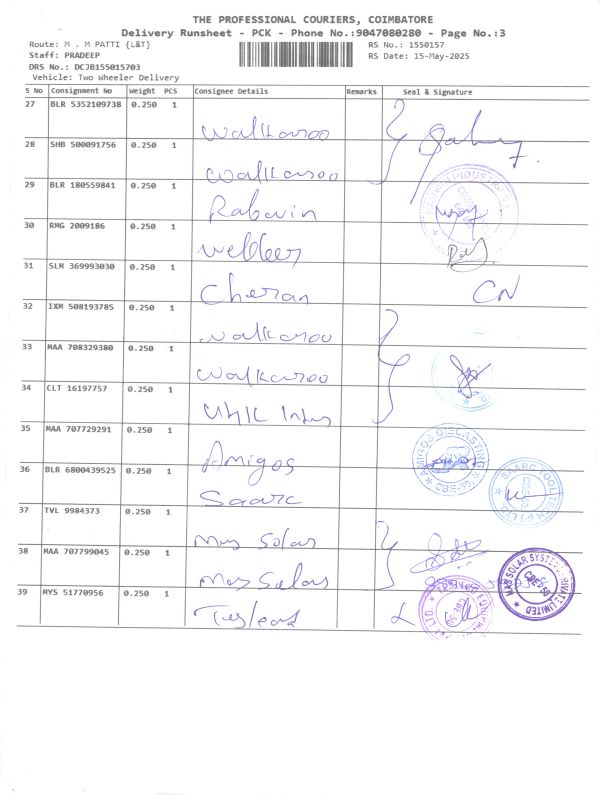 THE PROFESSIONAL COURIERS, COIMBATORE
Delivery Runsheet - PCK - Phone No.:9047080280 - Page No.:3
Route: M . M PATTI {L&T}
RS No.: 1550157
Staff: PRADEEP
RS Date: 15-May-2025
DRS No.: DCJB155015703
Vehicle: Two Wheeler Delivery
S No Consignment No Weight PCS Consignee Details Remarks Seal & Signature
27 BLR 5352109738 0.250 1 Walkaroo
28 SHB 500091756 0.250 1 Walkaroo
29 BLR 180559841 0.250 1
30 RMG 2009186 0.250 1
31 SLM 369993030 0.250 1 Cheran CN
32 IXM 508193785 0.250 1 Walkaroo
33 MAA 708329380 0.250 1 Walkaroo
34 CLT 16197757 0.250 1
35 MAA 707729291 0.250 1 Amigos
AMIGOS DIECASTING
CBE-50.
36 BLR 6800439525 0.250 1 Saarc
37 TVL 9984373 0.250 1 Mas Solar
38 MAA 707799045 0.250 1 Mas Solar
MAS SOLAR SYSTEMS PRIVATE LIMITED
CBE-50
39 MYS 51770956 0.250 1